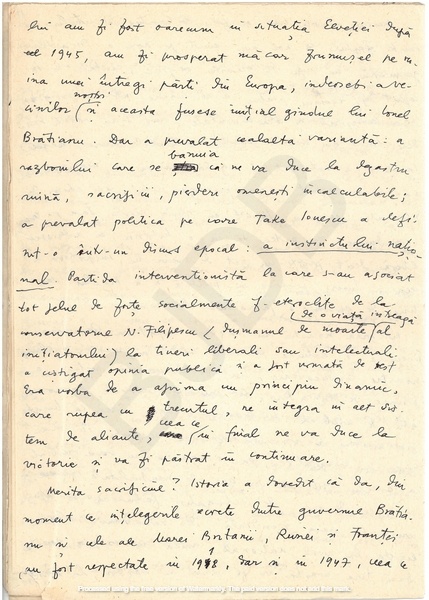 lui am fi fost oarecum în situația Elveției după
cel 1945, am fi prosperat măcar frumușel pe ru-
ina unei întregi părți din Europa, îndeosebi a ve-
cinilor noștri (și aceasta fusese inițial gîndul lui Ionel
Brătianu. Dar a prevalat cealaltă variantă: a
războiului care se bănuia că ne va duce la dezastru
ruină, sacrificii, pierderi omenești incalculabile;
a prevalat politica pe care Take Ionescu a defi-
nit-o într-un discurs epocal: a instinctului națio-
nal. Partida intervenționistă la care s-au asociat
tot felul de forțe socialmente f. eteroclite de la
conservatorul N. Filipescu (dușmanul de moarte de o viață întreagă al
inițiatorului) la tineri liberali sau intelectuali
a cîștigat opinia publică și a fost urmată de rest
Era vorba de a afirma un principiu dinamic,
care rupea cu trecutul, ne integra în alt sis-
tem de alianțe, ceea ce (în final ne va duce la
victorie și va fi păstrat în continuare.
Merita sacrificiul? Istoria a dovedit că da, din
moment ce înțelegerile secrete dintre guvernul Brătia-
nu și cele ale Marei Britanii, Rusiei și Franței
au fost respectate în 1918, dar și în 1947, ceea ce